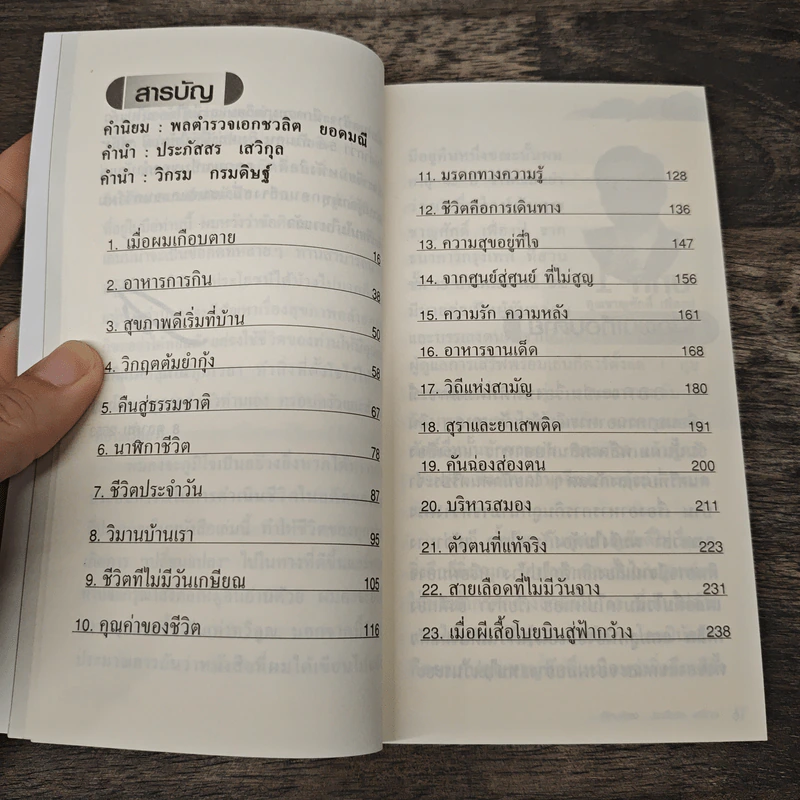 สารบัญ
คำนิยม : พลตำรวจเอกชวลิต ยอดมณี
คำนำ : ประภัสสร เสวิกุล
คำนำ : วิกรม กรมดิษฐ์
1. เมื่อผมเกือบตาย 16
2. อาหารการกิน 38
3. สุขภาพดีเริ่มที่บ้าน 50
4. วิกฤตต้มยำกุ้ง 58
5. คืนสู่ธรรมชาติ 67
6. นาฬิกาชีวิต 78
7. ชีวิตประจำวัน 87
8. วิมานบ้านเรา 95
9. ชีวิตที่ไม่มีวันเกษียณ 105
10. คุณค่าของชีวิต 116
11. มรดกทางความรู้ 128
12. ชีวิตคือการเดินทาง 136
13. ความสุขอยู่ที่ใจ 147
14. จากศูนย์สู่ศูนย์ ที่ไม่สูญ 156
15. ความรัก ความหลัง 161
16. อาหารจานเด็ด 168
17. วิถีแห่งสามัญ 180
18. สุราและยาเสพติด 191
19. คันฉองส่องตน 200
20. บริหารสมอง 211
21. ตัวตนที่แท้จริง 223
22. สายเลือดที่ไม่มีวันจาง 231
23. เมื่อผีเสื้อโบยบินสู่ฟ้ากว้าง 238